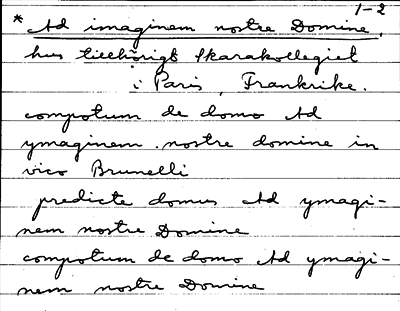 1-2
* Ad imaginem nostre Domine,
hus tillhörigt Skarakollegiet
i Paris, Frankrike.
compotum de domo Ad
ymaginem nostre domine in
vico Brunelli
predicte domus Ad ymagi-
nem nostre Domine
compotum de domo Ad ymagi-
nem nostre Domine